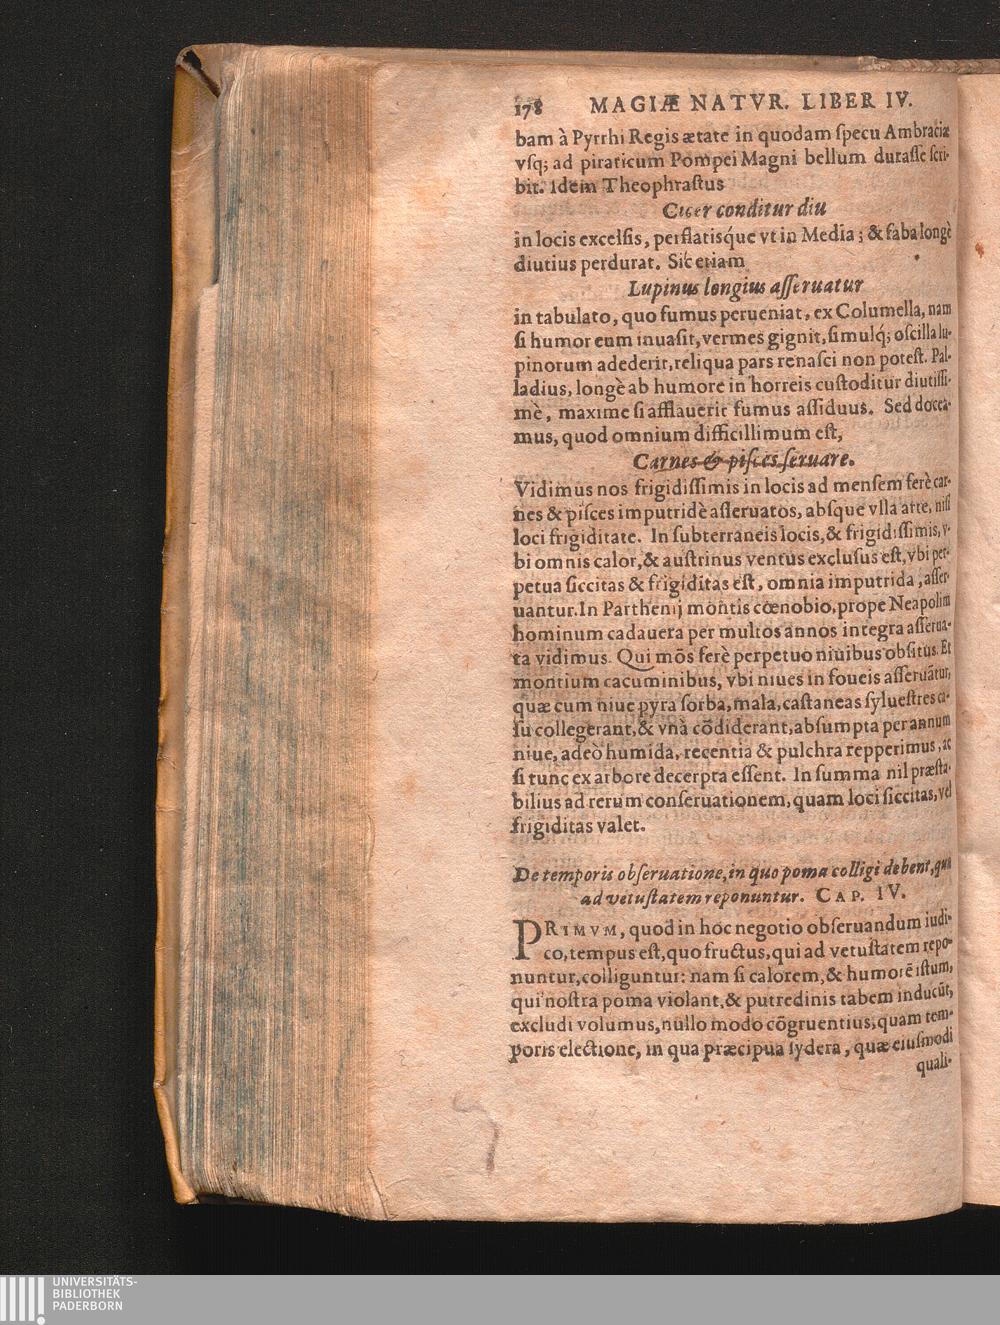 178 MAGIÆ NATVR. LIBER IV.
bam à Pyrrhi Regis ætate in quodam ſpecu Ambraciæ
vſq; ad piraticum Pompei Magni bellum duraſſe ſcri-
bit. Idem Theophraſtus
Cicer conditur diu
in locis excelſis, perflatisq́ue vt in Media; & faba longè
diutius perdurat. Sic etiam
Lupinus longius aſſeruatur
in tabulato, quo fumus perueniat, ex Columella, nam
ſi humor eum inuaſit, vermes gignit, ſimulq́; oſcilla lu-
pinorum adederit, reliqua pars renaſci non poteſt. Pal-
ladius, longè ab humore in horreis cuſtoditur diutiſſi-
mè, maxime ſi afflauerit fumus aſſiduus. Sed docea-
mus, quod omnium difficillimum eſt,
Carnes & piſces ſeruare.
Vidimus nos frigidiſſimis in locis ad menſem ferè car-
nes & piſces imputridè aſſeruatos, absque vlla arte, niſi
loci frigiditate. In ſubterraneis locis, & frigidiſſimis, v-
bi omnis calor, & auſtrinus ventus excluſus eſt, vbi per-
petua ſiccitas & frigiditas eſt, omnia imputrida, aſſer-
uantur. In Parthenij montis cœnobio, prope Neapolim
hominum cadauera per multos annos integra aſſerua-
ta vidimus. Qui mōs ferè perpetuo niuibus obſitus. Et
montium cacuminibus, vbi niues in foueis aſſeruātur,
quæ cum niue pyra ſorba, mala, caſtaneas ſylueſtres ca-
ſu collegerant, & vnà cōdiderant, abſumpta per annum
niue, adeò humida, recentia & pulchra repperimus, ac
ſi tunc ex arbore decerpta eſſent. In ſumma nil præſta-
bilius ad rerum conſeruationem, quam loci ſiccitas, vel
frigiditas valet.
De temporis obſeruatione, in quo poma colligi debent, quæ
ad vetuſtatem reponuntur. CAP. IV.
PRIMVM, quod in hoc negotio obſeruandum iudi-
co, tempus eſt, quo fructus, qui ad vetuſtatem repo-
nuntur, colliguntur: nam ſi calorem, & humorē iſtum,
qui noſtra poma violant, & putredinis tabem inducūt,
excludi volumus, nullo modo cōgruentius, quam tem-
poris electione, in qua præcipua ſydera, quæ eiuſmodi
quali-
UNIVERSITÄTS-
BIBLIOTHEK
PADERBORN